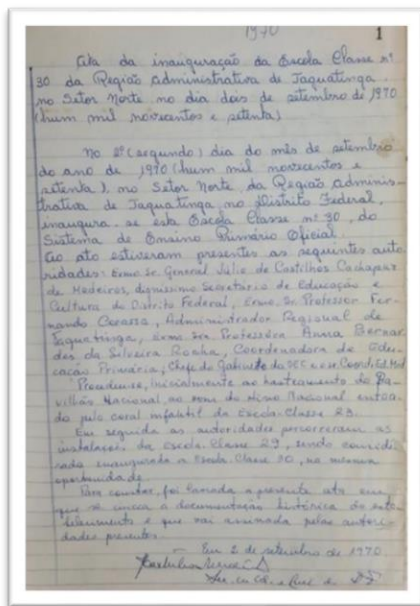 1970
1
Ata da inauguração da Escola Classe nº
30 da Região Administrativa de Taguatinga
no Setor Norte no dia dois de setembro de 1970
(hum mil novecentos e setenta)
No 2º (segundo) dia do mês de setembro
do ano de 1970 (hum mil novecentos e
setenta), no Setor Norte da Região Adminis-
trativa de Taguatinga, no Distrito Federal,
inaugura-se esta Escola Classe nº 30, do
Sistema de Ensino Primário Oficial.
Ao ato estiveram presentes as seguintes auto
ridades: Exmo Sr. General Júlio de Castilhos Cachapuz
de Medeiros, digníssimo Secretário de Educação e
Cultura do Distrito Federal, Exmo. Sr. Professor Fer-
nando, Administrador Regional de
Taguatinga, Exma Sra. Professora Anna Bernar
des da Silveira Rocha, Coordenadora de Edu-
cação Primária, Chefe do Gabinete da SEC
Procedeu-se, inicialmente ao hasteamento do Pa-
vilhão Nacional, ao som do Hino Nacional entoa-
do pelo coral infantil da Escola-Classe 23.
Em seguida as autoridades percorreram as
instalações da Escola-Classe 29, sendo conside-
rada inaugurada a Escola Classe 30, na mesma
oportunidade.
Para constar, foi lavrada a presente ata em
que se inicia a documentação histórica do esta
belecimento e que vai assinada pelas autori-
dades presentes.
Em 2 de setembro de 1970